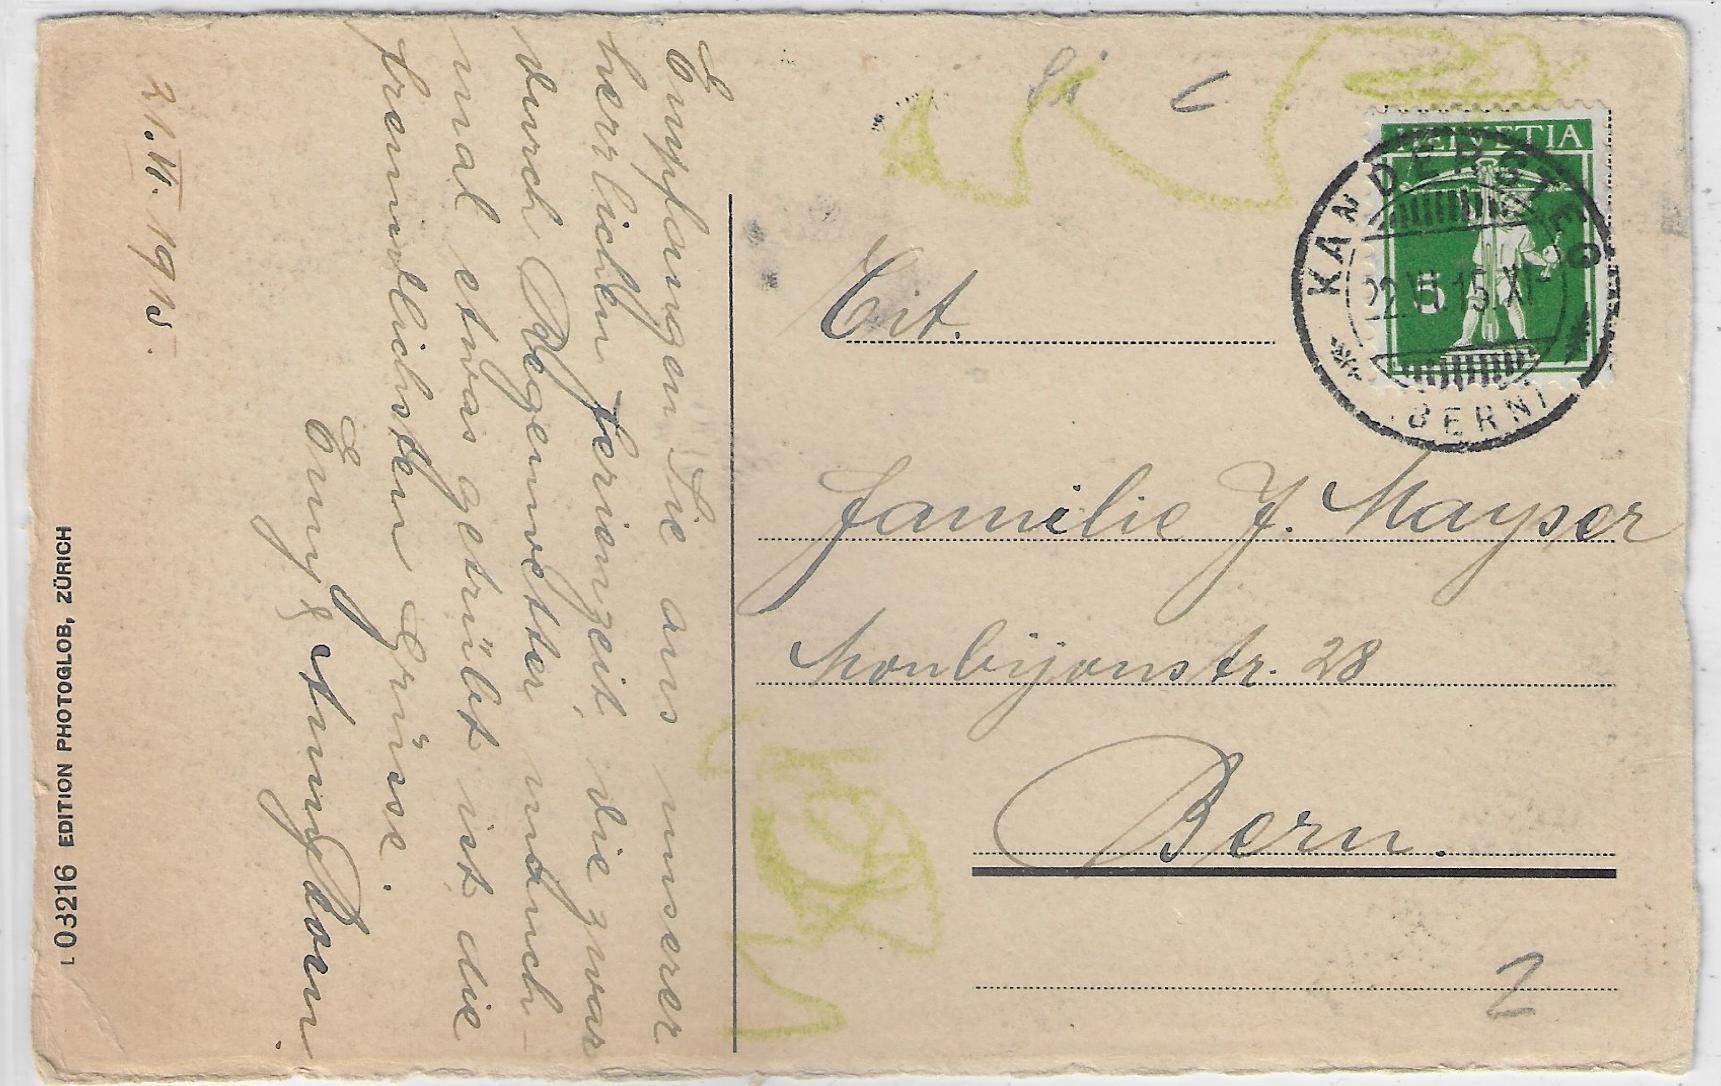 Empfangen Sie aus unserer
herrlichen Ferienzeit, die zwar
durch Regenwetter manch-
mal etwas getrübt ist, die
freundlichsten Grüsse.
Emmy &
21.VI.1915.
L 03216 EDITION PHOTOGLOB, ZÜRICH
HELVETIA
5
KANDERSTEG
22.VI.15.XI
(BERN)
Tit.
Familie J. Mayser
Monbijoustr. 28
Bern.
2